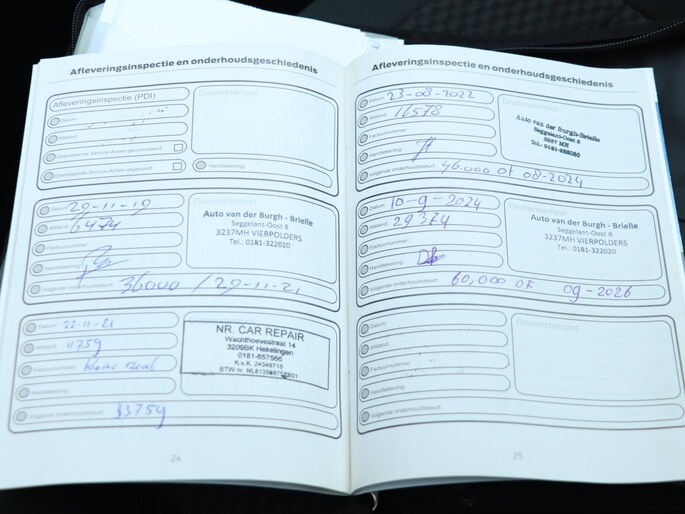 Afleveringsinspectie en onderhoudsgeschiedenis
Afleveringsinspectie (PDI)
Datum:
Afstand:
Handtekening:
Dealerstempel
Datum: 29-11-19
Afstand: 6474
Factuurnummer:
Handtekening:
Volgende onderhoudsbeurt: 36000 / 29-11-21
Dealerstempel
Auto van der Burgh - Brielle
Seggelant-Oost 8
3237MH VIERPOLDERS
Tel.: 0181-322020
Datum: 22-11-21
Afstand: 11759
Factuurnummer:
Handtekening:
Volgende onderhoudsbeurt: 33759
NR. CAR REPAIR
Wachthoevestraat 14
3209BK Hekelingen
0181-657566
K.v.K. 24349715
BTW nr.
24
Afleveringsinspectie en onderhoudsgeschiedenis
Datum: 23-08-2022
Afstand: 16578
Factuurnummer:
Handtekening:
Volgende onderhoudsbeurt: 46.000 of 08-2024
Dealerstempel
Auto van der Burgh-Brielle
Seggelant-Oost 8
Datum: 10-9-2024
Afstand: 29374
Factuurnummer:
Handtekening:
Volgende onderhoudsbeurt: 60,000 OF 09-2026
Dealerstempel
Auto van der Burgh - Brielle
Seggelant-Oost 8
3237MH VIERPOLDERS
Tel.: 0181-322020
Datum:
Afstand:
Factuurnummer:
Handtekening:
Volgende onderhoudsbeurt:
Dealerstempel
25